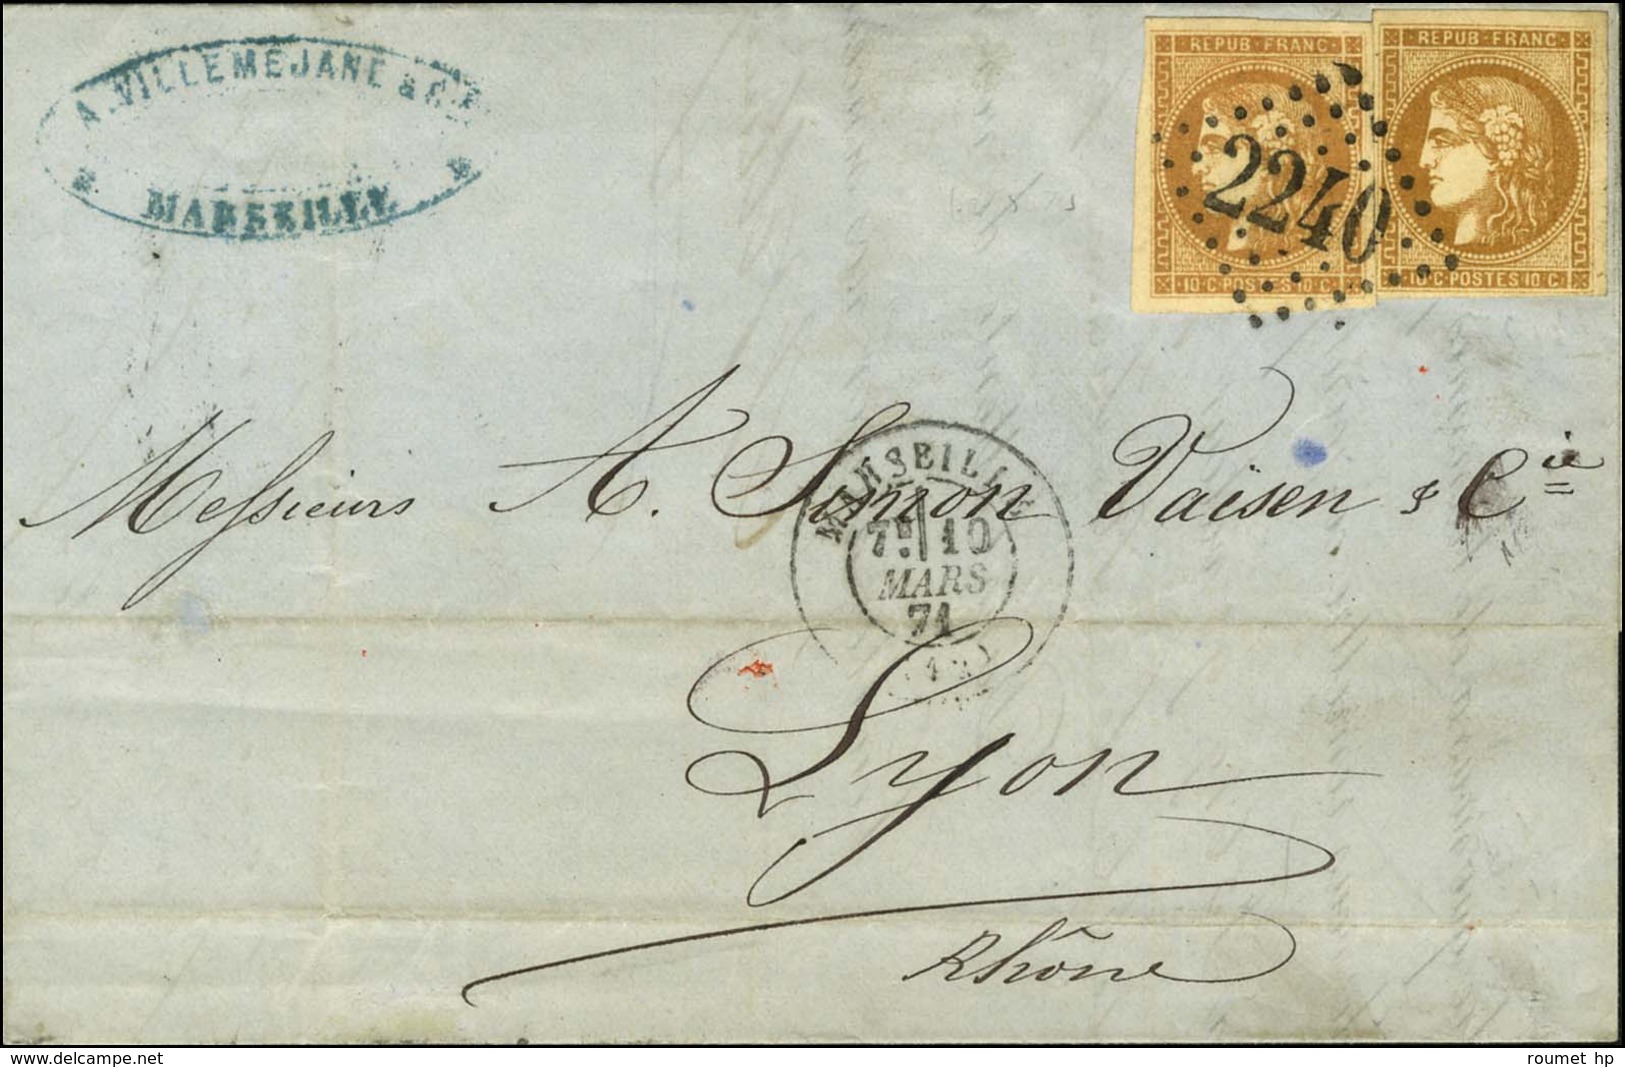 A. VILLEMEJANE & Cie
MARSEILLE
REPUB · FRANC ·
10 · C · POSTES · 10 · C ·
REPUB · FRANC ·
10 · C · POSTES · 10 · C ·
2240
Messieurs A. Simon Vaïsen & Cie
MARSEILLE
7E 10
MARS
71
(12)
Lyon
Rhône
www.delcampe.net
roumet hp